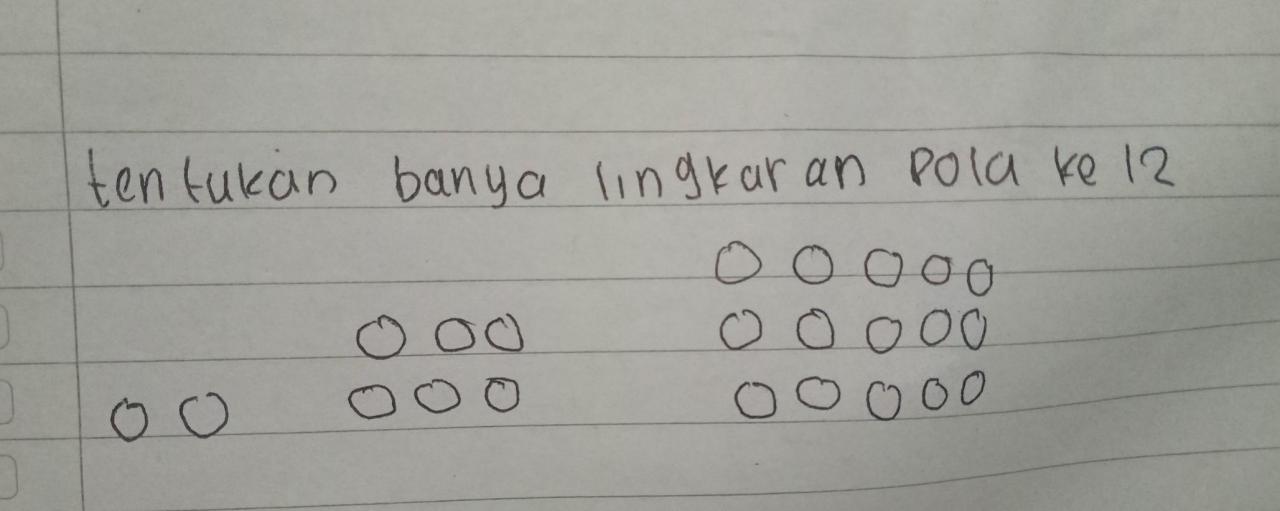 tentukan banya lingkaran pola ke 12